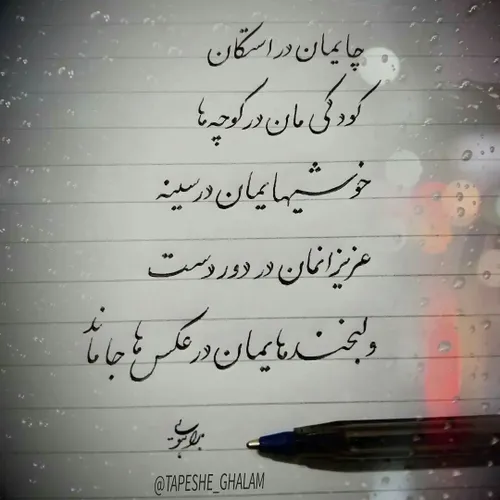 چایمان در استکان
کودکی مان در کوچه ها
خوشیهایمان در سینه
عزیزانمان در دوردست
و لبخندهایمان در عکس ها جا ماند
@TAPESHE_GHALAM